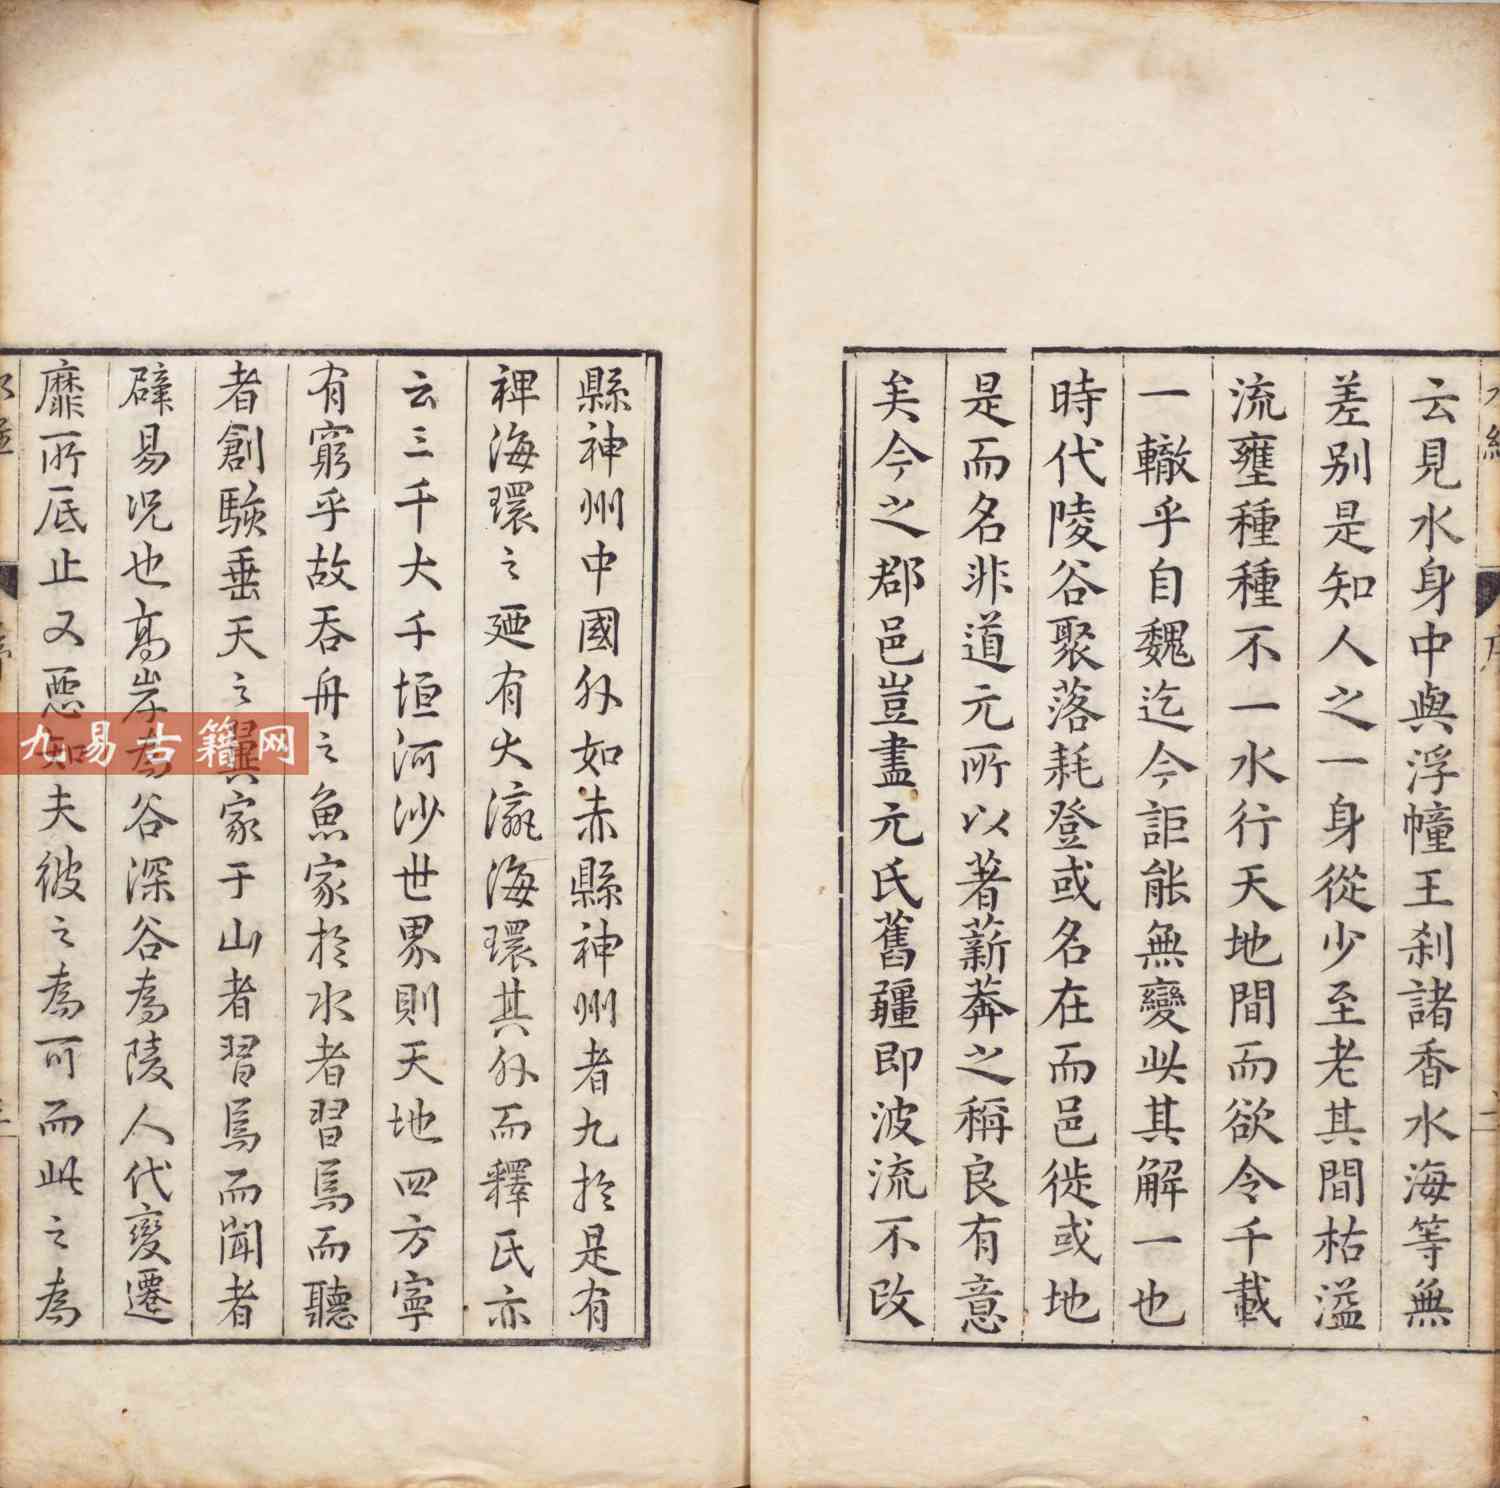 云見水身中與浮幢王刹諸香水海等無
差别是知人之一身從少至老其間枯溢
流壅種種不一水行天地間而欲令千載
一轍乎自魏迄今詎能無變此其解一也
時代陵谷聚落耗登或名在而邑徙或地
是而名非道元所以著薪莽之稱良有意
矣今之郡邑豈盡元氏舊疆即波流不改
縣神州中國外如赤縣神州者九於是有
裨海環之廼有大瀛海環其外而釋氏亦
云三千大千垣河沙世界則天地四方寧
有窮乎故吞舟之魚家於水者習焉而聽
者創駭垂天之翼家于山者習焉而聞者
辟易况也高岸為谷深谷為陵人代變遷
靡所底止又惡知夫彼之為可而此之為
九易古籍网